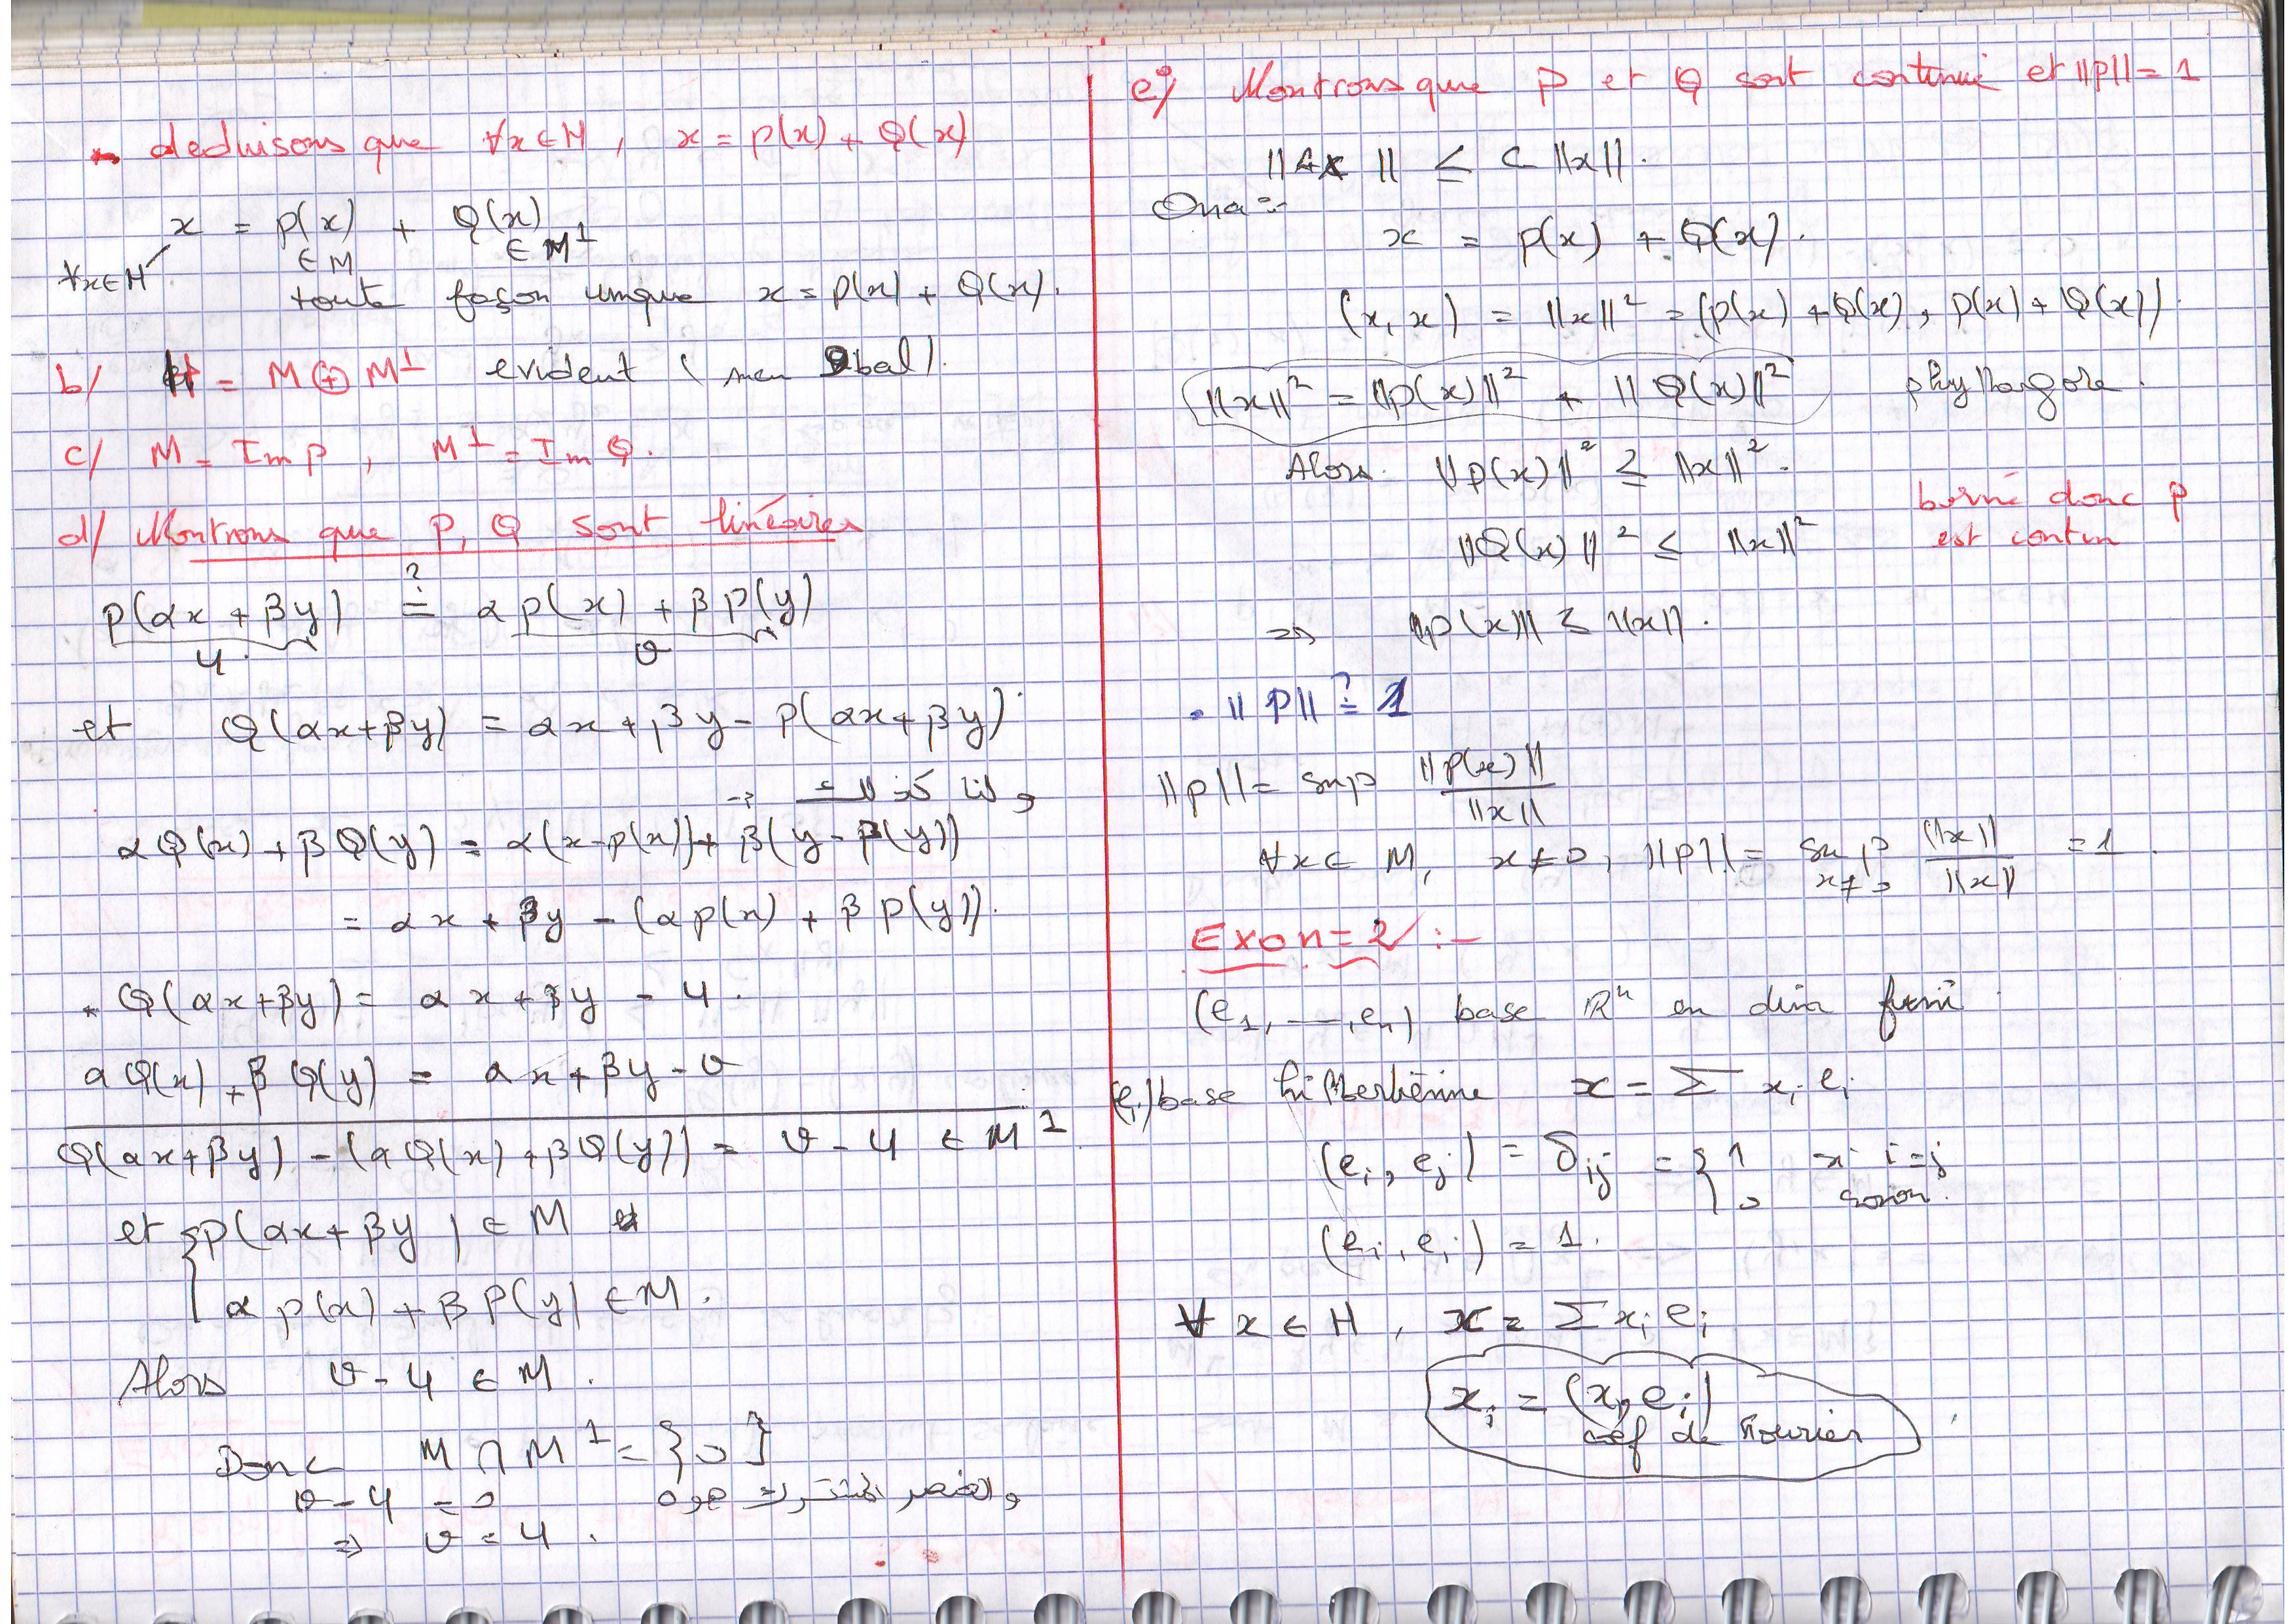 deduisons que ∀x∈H, x = p(x) + Q(x)
x = p(x) + Q(x)
∀x∈H ∈M ∈M⊥
toute façon unique x = p(x) + Q(x).
b/ H = M ⊕ M⊥ evident (
c/ M = Im P, M⊥ = Im Q.
d/ Montrons que P, Q sont linéaires
p(αx + βy) =? α p(x) + β p(y)
u v
et Q(αx+βy) = αx + βy - P(αx+βy)
و لنا كذلك
αQ(x) + βQ(y) = α(x-p(x)) + β(y - P(y))
= αx + βy - (αp(x) + β p(y)).
Q(αx+βy) = αx + βy - u.
αQ(x) + βQ(y) = αx + βy - v
Q(αx+βy) - (αQ(x) + βQ(y)) = v - u ∈ M⊥
et { p(αx + βy) ∈ M et
α p(x) + β P(y) ∈ M.
Alors v - u ∈ M.
Donc M ∩ M⊥ = {0}
v - u = 0 والعنصر المشترك هو 0
⇒ v = u.
e/ Montrons que P et Q sont continue et ||P|| = 1
||Ax|| ≤ c ||x||.
Ona :
x = p(x) + Q(x).
(x, x) = ||x||² = (p(x) + Q(x), p(x) + Q(x))
||x||² = ||p(x)||² + ||Q(x)||² phythagore.
Alors ||p(x)||² ≤ ||x||².
||Q(x)||² ≤ ||x||² borné donc p
est contin
⇒ ||p(x)|| ≤ ||x||.
. ||P|| =? 1
||p|| = sup ||p(x)|| / ||x||
∀x ∈ M, x≠0, ||p|| = sup x≠0 ||x|| / ||x|| = 1.
Exo n = 2 :-
(e1, ---, en) base ℝⁿ en dim fini
(ei) base hilbertienne x = Σ xi ei
(ei, ej) = δij = { 1 si i=j
0 sinon.
(ei, ei) = 1.
∀ x ∈ H, x = Σ xi ei
xi = (x, ei)
coef de Fourier